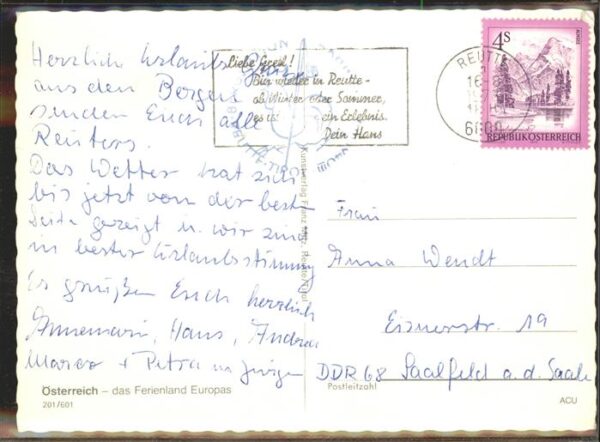 Herzlich Urlaubs
aus den Bergen
senden Euch alle
Reuters.
Das Wetter hat sich
bis jetzt von der besten
Seite gezeigt u. wir sind
in bester Urlaubsstimmung
Es grüßen Euch herzlich
Annemarie, Hans, Andrea
Marco + Petra u. Jürgen
Österreich – das Ferienland Europas
201/601
Liebe Gretl!
Bin wieder in Reutte –
ob Winter oder Sommer,
es ist ein Erlebnis.
Dein Hans
REUTTE-TIROL
Kunstverlag Franz Milz, Reutte/Tirol
REUTTE
6600
4S
REPUBLIK ÖSTERREICH
Frau
Anna Wendt
Eisnerstr. 19
DDR 68 Saalfeld a.d. Saale
Postleitzahl
ACU